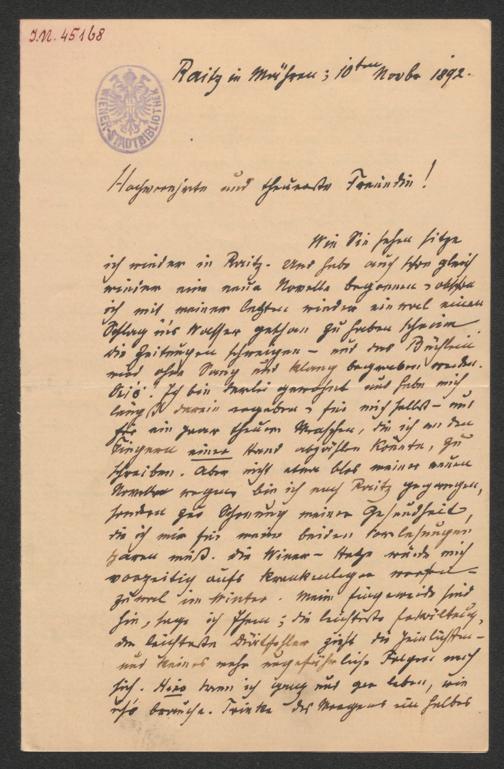 I.N. 45168
WIENER STADTBIBLIOTHEK
Raitz in Mähren; 10ten Novbr 1892.
Hochverehrte und theuerste Freundin!
Wie Sie sehen sitze
ich wieder in Raitz. Und habe auch schon gleich
wieder eine neue Novelle begonnen, obschon
ich mit meiner letzten wieder einmal einen
Schlag ins Wasser gethan zu haben scheine.
Die Zeitungen schweigen – und das Büchlein
wird ohne Sang und Klang begraben werden.
Ich bin derlei gewohnt und habe mich
längst darein ergeben, für mich selbst – und
für ein paar theure Menschen, die ich an den
Fingern einer Hand abzählen könnte, zu
schreiben. Aber nicht etwa blos meiner neuen
Novelle wegen bin ich nach Raitz gegangen,
sondern zur Schonung meiner Gesundheit,
die ich mir für meine beiden Vorlesungen
sparen muß. Die Wiener-Hetze würde mich
vorzeitig aufs Krankenlager werfen –
zumal im Winter. Meine Eingeweide sind
hin, sage ich Ihnen; die leichteste Erkältung,
der leichteste Diätfehler zieht die peinlichsten –
und keines mehr ungefährliche Folgen nach
sich. Hier kann ich ganz und gar leben, wie
ich's brauche. Trinke des Morgens ein halbes